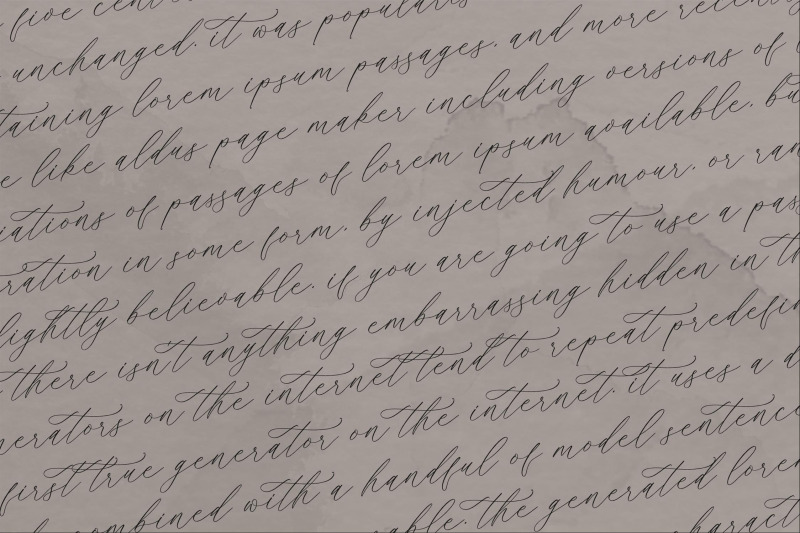 five cent
unchanged. it was popularis
taining lorem ipsum passages. and more recently
e like aldus page maker including versions of l
iations of passages of lorem ipsum available. bu
ration in some form. by injected humour. or ran
lightly believable. if you are going to use a pass
there isn't anything embarrassing hidden in th
nerators on the internet tend to repeat predefin
first true generator on the internet. it uses a d
combined with a handful of model sentence
able. the generated lorem
charact